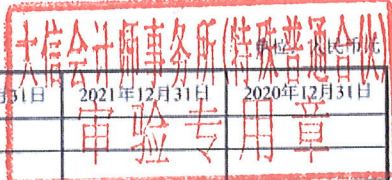 大信会计师事务所(特殊普通合伙)
单位：人民币元
月31日 2021年12月31日 2020年12月31日
审验专用章